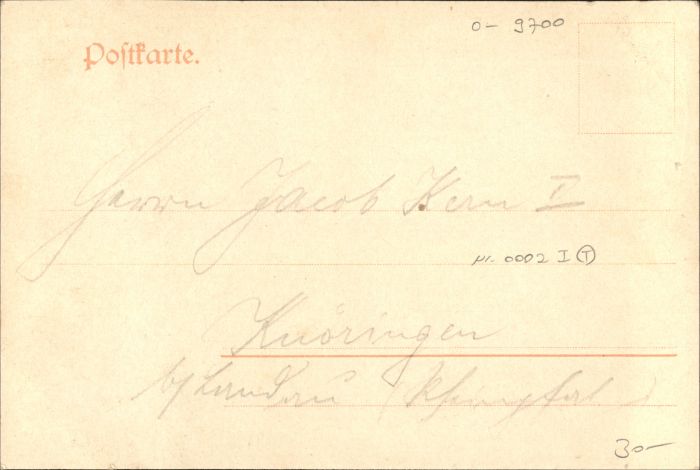 Postkarte.
0- 9700
Herrn Jacob Kern I
0002 I T
Knöringen
b/ Landau (Rheinpfalz)
30-